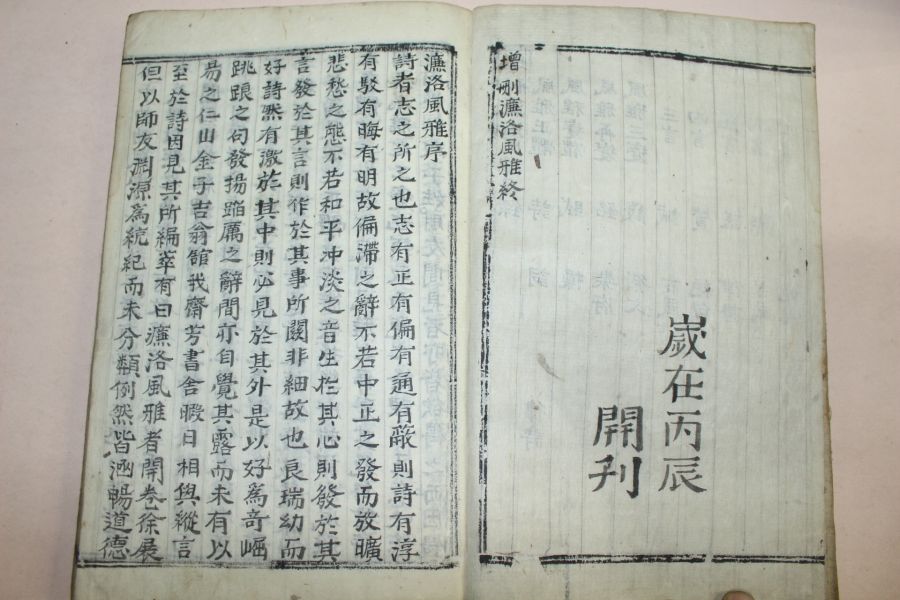 增刪濂洛風雅終
歲在丙辰
開刊
濂洛風雅序
詩者志之所之也志有正有偏有通有蔽則詩有淳
有駁有晦有明故偏滯之辭不若中正之發而放曠
悲愁之態不若和平冲淡之音生於其心則發於其
言發於其言則作於其事所關非細故也良瑞幼而
好詩然有激於其中則必見於其外是以好爲奇崛
跳踉之句發揚蹈厲之辭間亦自覺其露而未有以
易之仁山金子吉翁館我齋芳書舍暇日相與縱言
至於詩因見其所編萃有曰濂洛風雅者開卷徐展
但以師友淵源爲統紀而未分類例然皆涵暢道德